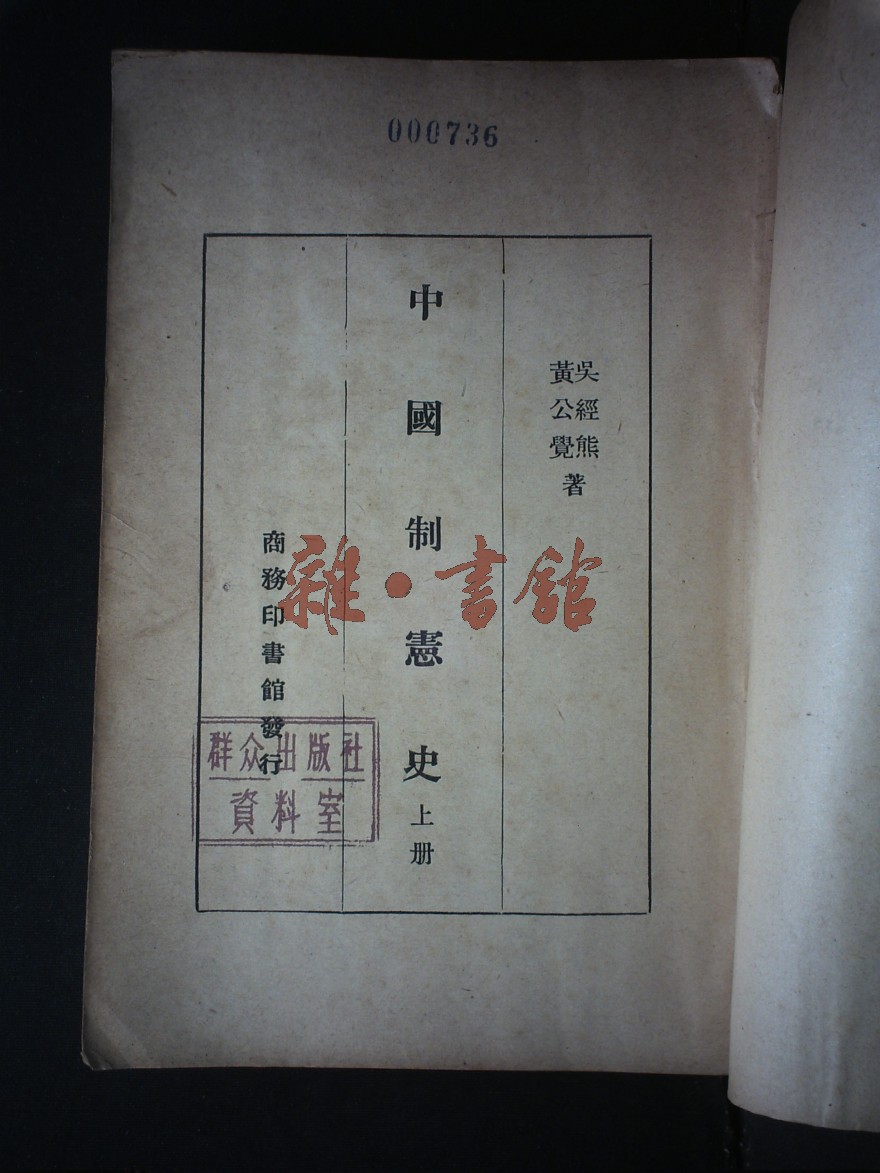 000736
吳經熊
黃公覺
著
中國制憲史
上册
商務印書館發行
群众出版社
資料室
雜·書舘